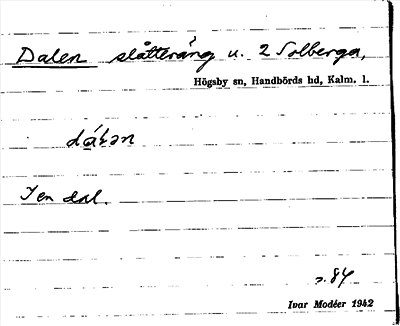 Dalen slåtteräng u. 2 Solberga,
Högsby sn, Handbörds hd, Kalm. l.
I en dal.
s. 84
Ivar Modéer 1942